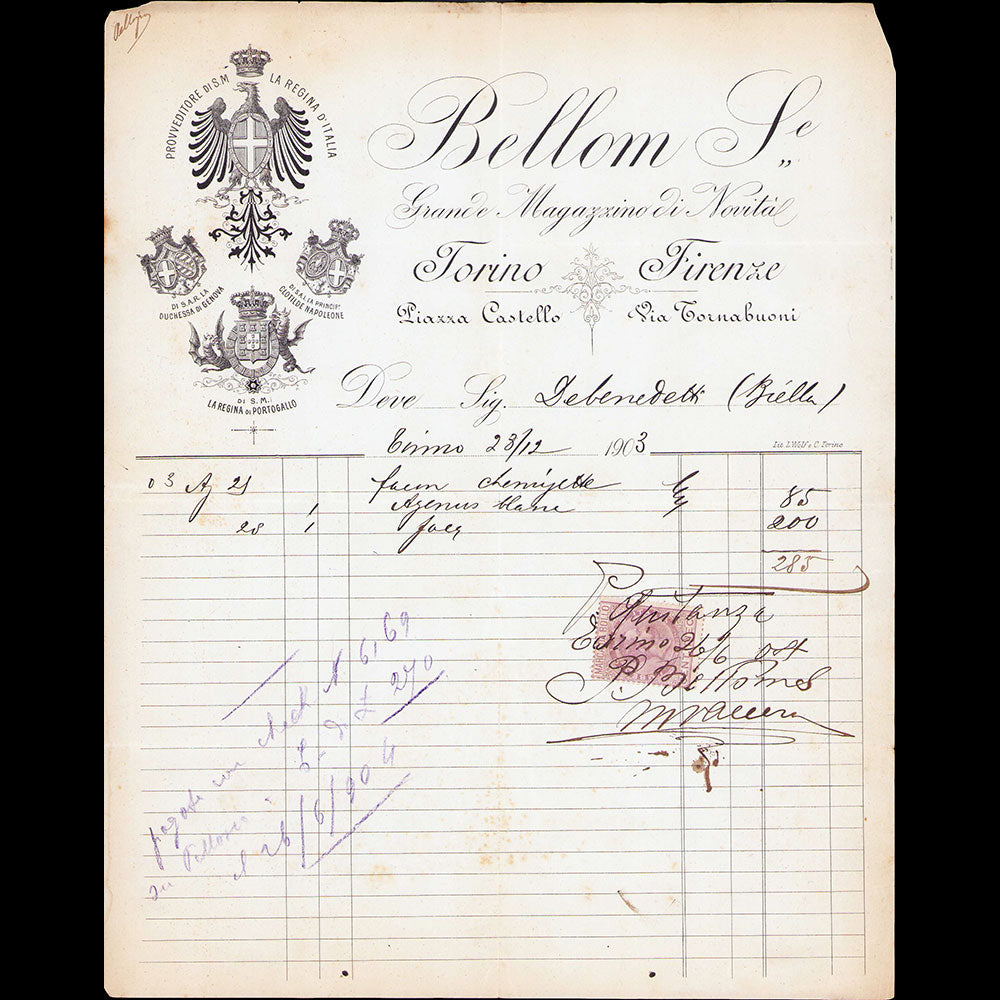 PROVVEDITORE DI S.M LA REGINA D'ITALIA
Bellom S.e
Grande Magazzino di Novità
Torino Firenze
Piazza Castello Via Tornabuoni
DI S.A.R. LA
DUCHESSA DI GENOVA
DI S.A.I. LA PRINCIP.
CLOTILDE NAPOLEONE
DI S.M.
LA REGINA DI PORTOGALLO
Deve Sig. Debenedetti (Biella)
Torino 28/12 1903
Lit. L. Wolf e C. Torino
03 Ag 21 façon chemisette
1 blanc 85
28 1 200
285
Quitanza
MARCA DA BOLLO
Torino 26/6 04
P. Bellom S
pagato con check N 6,69
su
£ 270
il 26/6/904